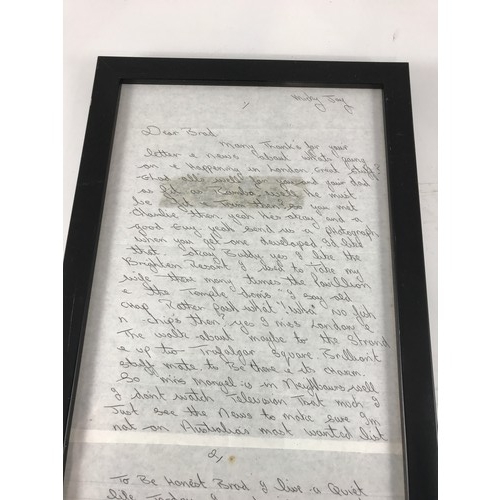 1/
Dear Brad
Many Thanks for your
letter & news about whats going
on & Happening in London Great Stuff?
Glad alls well for you and your Dad
as Old as Rambo well he must
be
you met
Charlie then, yeah Hes okay and a
good Guy, yeah send us a photograph
when you get one developed I'd like
that. Okay Buddy yes I like the
Brighton Resort I used to Take my
wife there many times the Pavillion
e the Temple Doms "I say old
chap Rather posh what, what" No fish
n chips then? yes I miss London e
The walk about maybe to the Strand
e up to Trafalgar Square Brilliant
stuff mate to Be there e its charm.
So Mrs Mangel is in Neighbours well
I dont watch Television That much I
Just see the News to make sure Im
not on Australias most wanted list
2/
To Be Honest Brad I live a Quiet
life Today